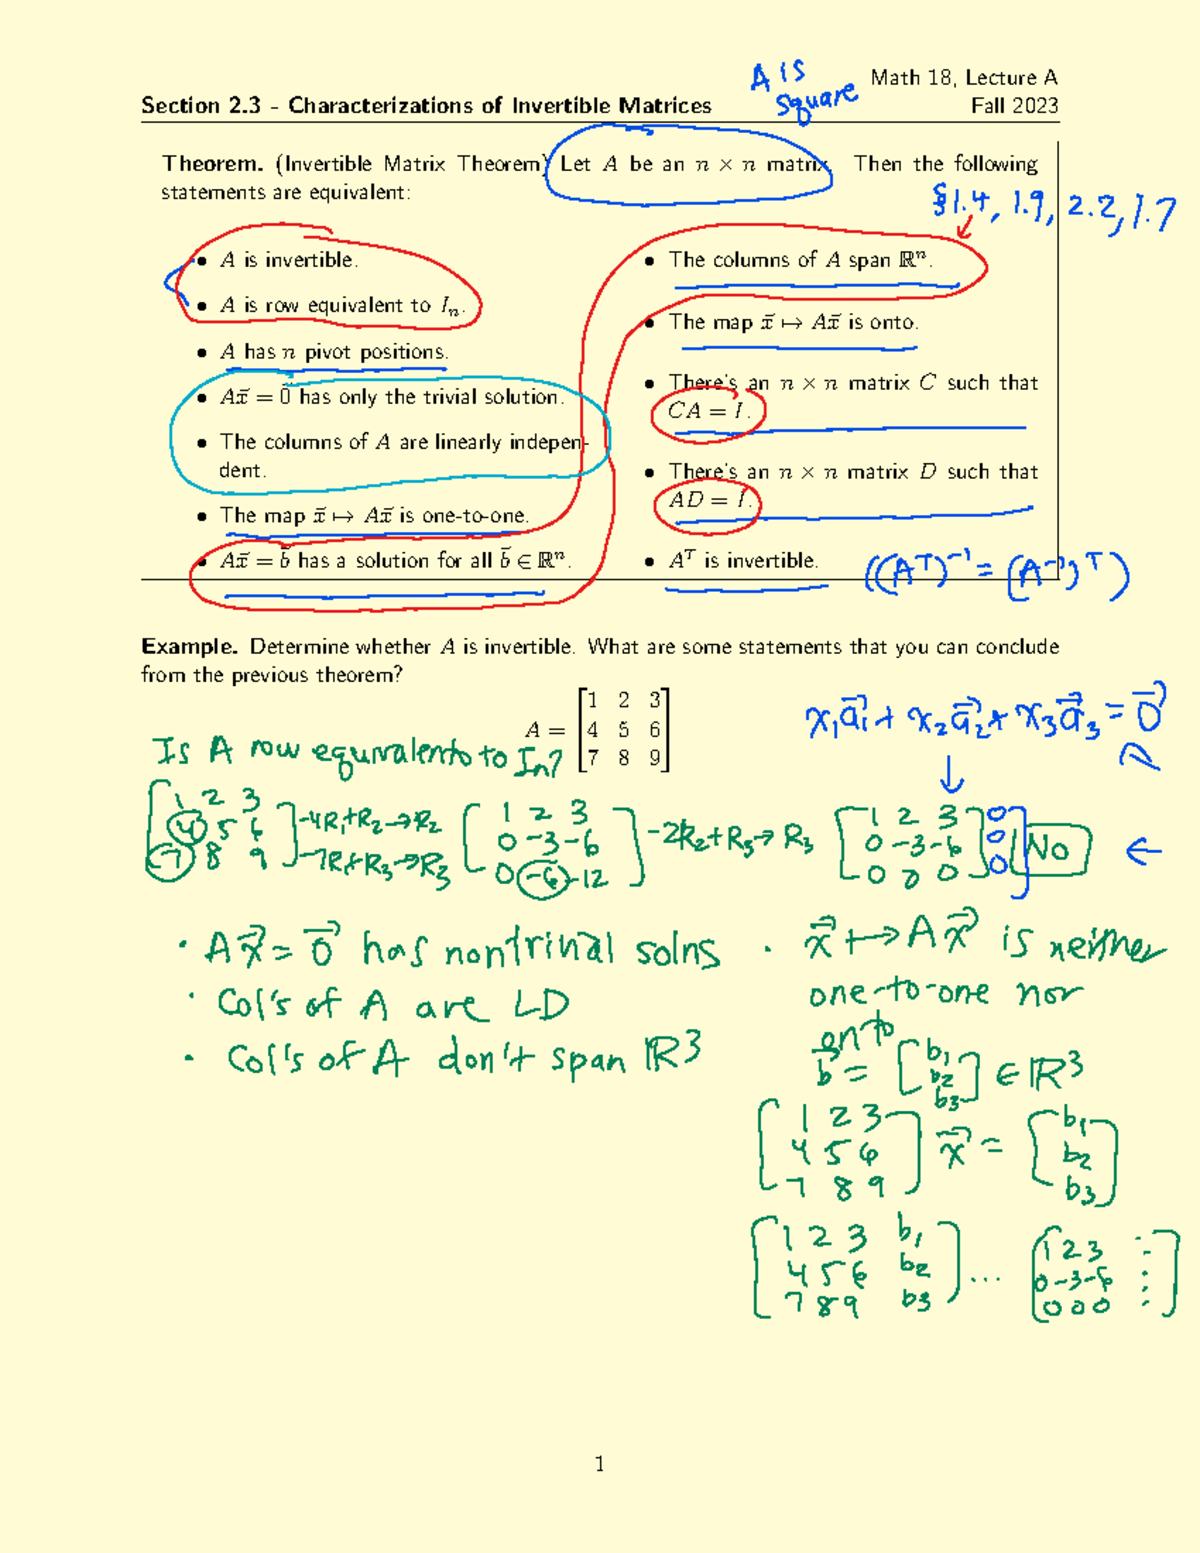 A is
Square
Math 18, Lecture A
Section 2.3 - Characterizations of Invertible Matrices
Fall 2023
Theorem. (Invertible Matrix Theorem) Let A be an n × n matrix. Then the following
statements are equivalent:
§1.4, 1.9, 2.2, 1.7
• A is invertible.
• A is row equivalent to Iₙ.
• A has n pivot positions.
• Ax⃗ = 0⃗ has only the trivial solution.
• The columns of A are linearly indepen-
dent.
• The map x⃗ ↦ Ax⃗ is one-to-one.
• Ax⃗ = b⃗ has a solution for all b⃗ ∈ ℝⁿ.
• The columns of A span ℝⁿ.
• The map x⃗ ↦ Ax⃗ is onto.
• There's an n × n matrix C such that
CA = I.
• There's an n × n matrix D such that
AD = I.
• Aᵀ is invertible.
((Aᵀ)⁻¹ = (A⁻¹)ᵀ)
Example. Determine whether A is invertible. What are some statements that you can conclude
from the previous theorem?
A = [1 2 3
4 5 6
7 8 9]
x₁a⃗₁ + x₂a⃗₂ + x₃a⃗₃ = 0⃗
↓
Is A row equivalent to In?
[1 2 3
4 5 6
7 8 9]
-4R₁+R₂→R₂
-7R₁+R₃→R₃
[1 2 3
0 -3 -6
0 -6 -12]
-2R₂+R₃→R₃
[1 2 3] 0
0 -3 -6 0
0 0 0 0]
No
←
• Ax⃗ = 0⃗ has nontrivial solns
• Col's of A are LD
• Col's of A don't span ℝ³
• x⃗ ↦ Ax⃗ is neither
one-to-one nor
onto
b⃗ = [b₁
b₂
b₃] ∈ ℝ³
[1 2 3
4 5 6
7 8 9] x⃗ = [b₁
b₂
b₃]
[1 2 3 b₁
4 5 6 b₂
7 8 9 b₃] ... [1 2 3
0 -3 -6
0 0 0]
1